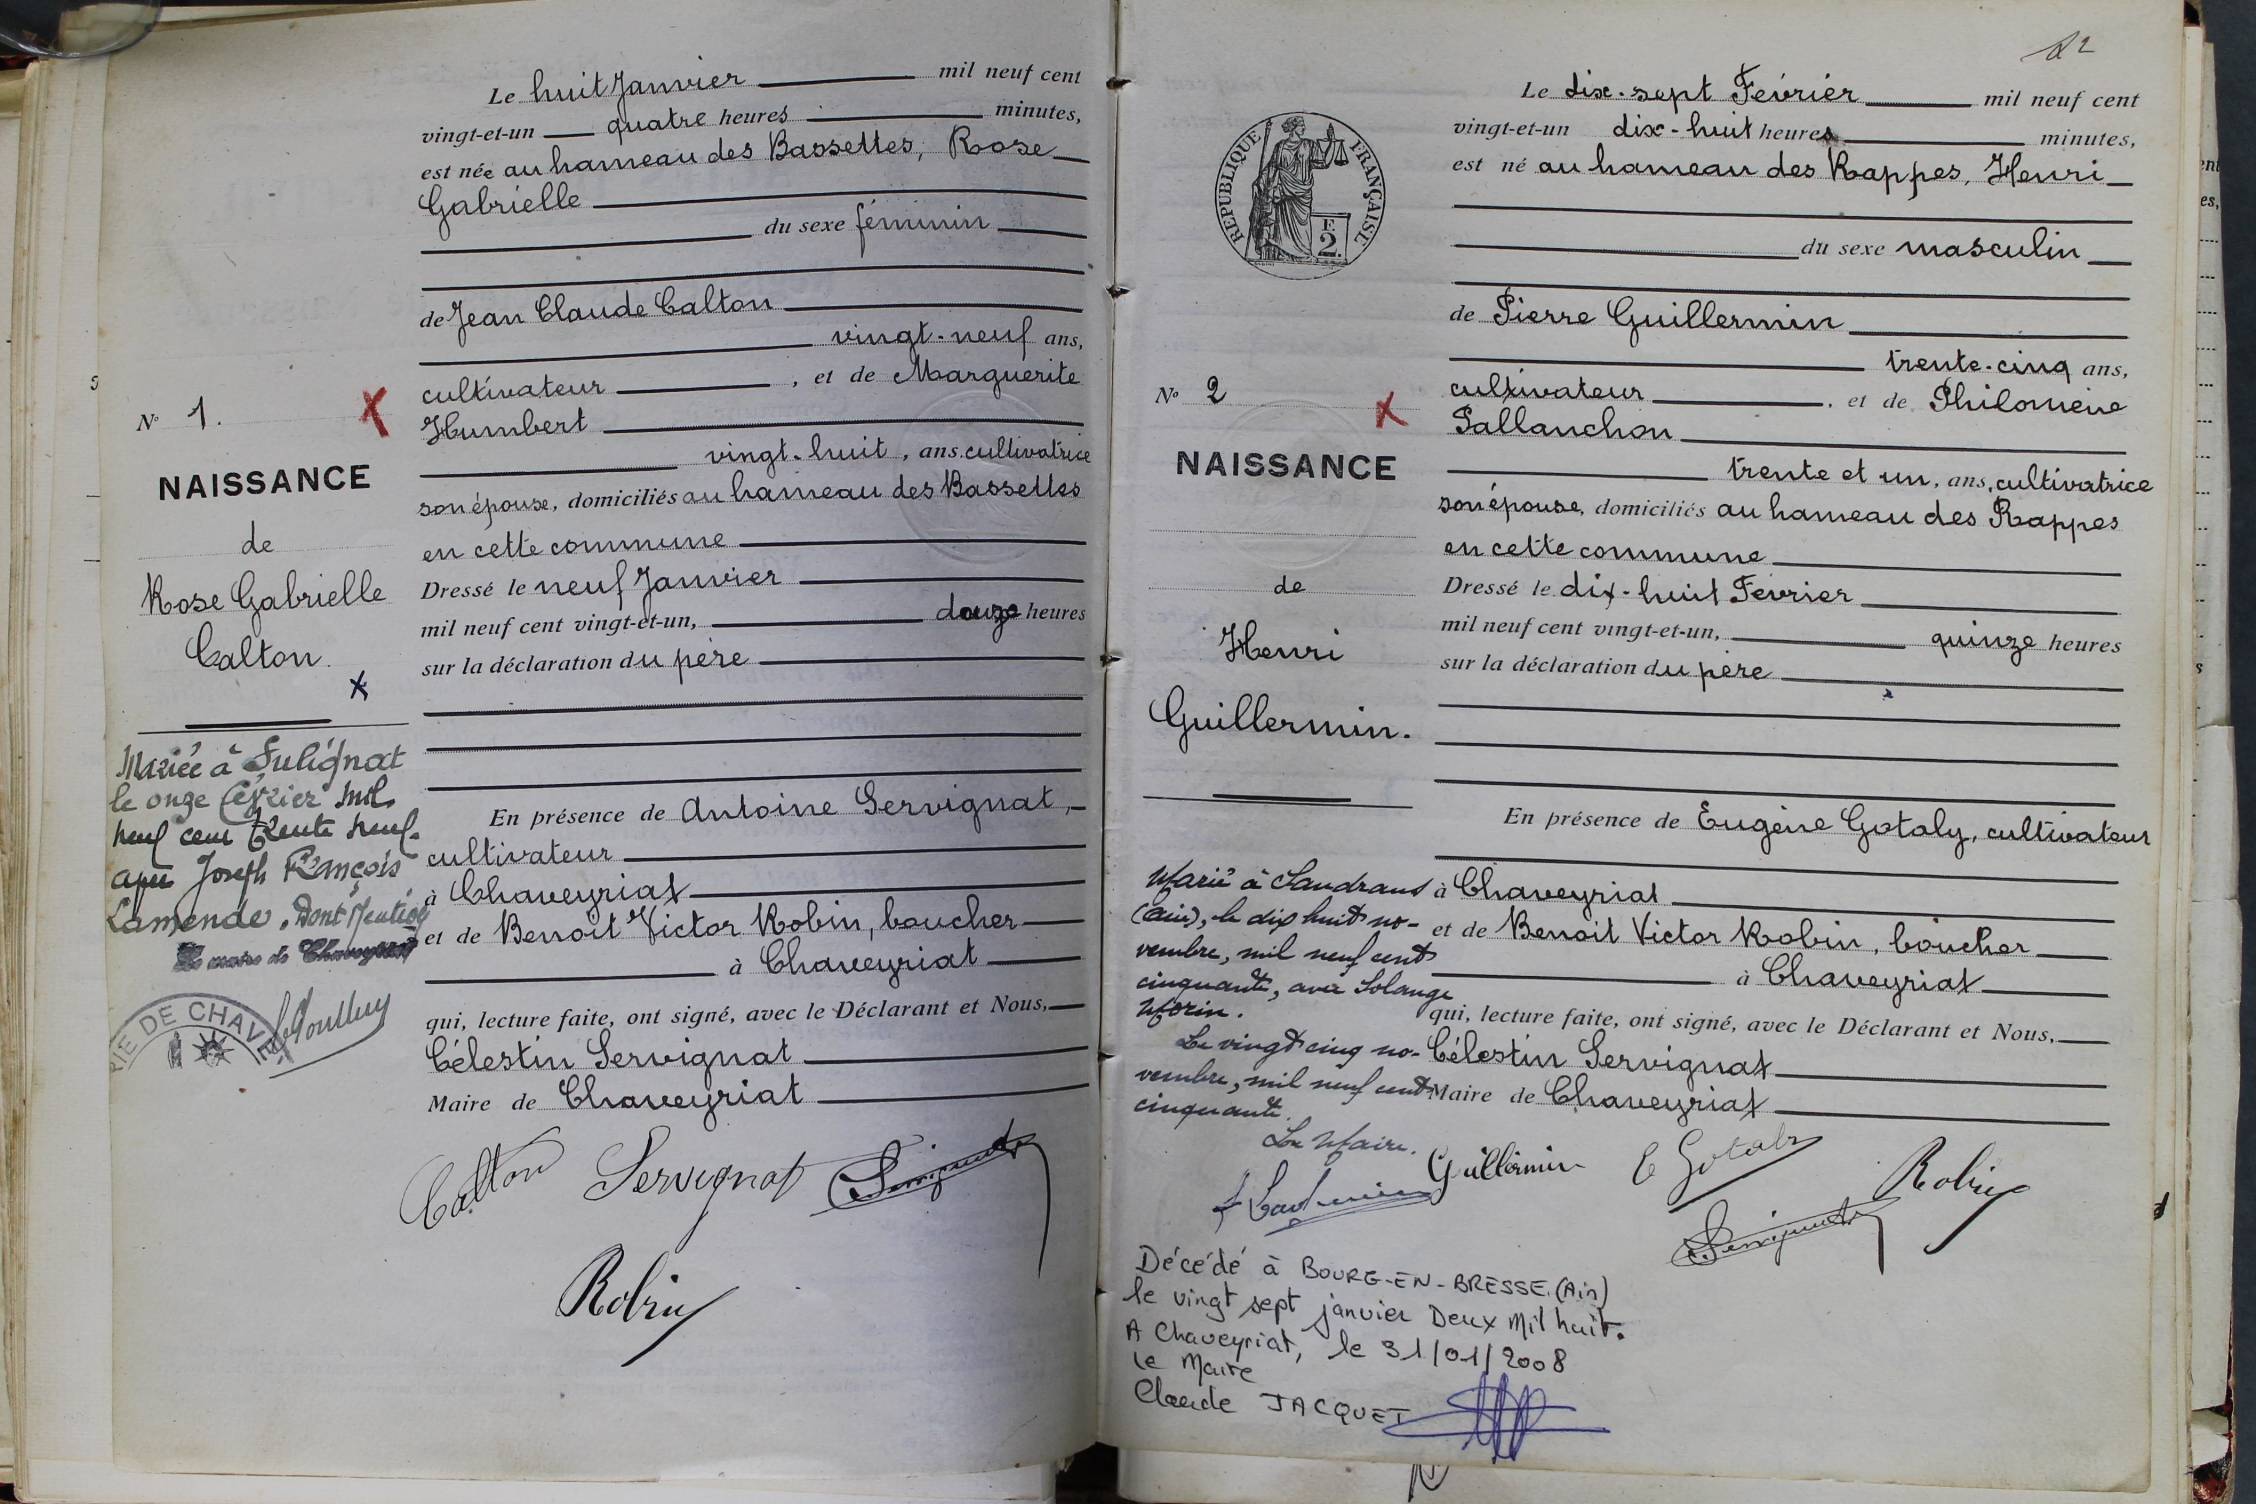 Le huit Janvier mil neuf cent
vingt-et-un quatre heures minutes,
est née au hameau des Bassettes, Rose
Gabrielle
du sexe féminin
de Jean Claude Calton
vingt-neuf ans,
cultivateur, et de Marguerite
Humbert
vingt-huit, ans, cultivatrice
son épouse, domiciliés au hameau des Bassettes
en cette commune
Dressé le neuf Janvier
mil neuf cent vingt-et-un, douze heures
sur la déclaration du père
En présence de Antoine Servignat,
cultivateur
à Chaveyriat
et de Benoit Victor Robin, boucher
à Chaveyriat
qui, lecture faite, ont signé, avec le Déclarant et Nous,
Célestin Servignat
Maire de Chaveyriat
Calton Servignat Servignat
Robin
No 1.
NAISSANCE
de
Rose Gabrielle
Calton.
Mariée à Sulignat
le onze février mil
neuf cent trente neuf
avec Joseph François
Lamende. Dont Mention
Le maire de Chaveyriat
RIE DE CHAVEY
12
Le dix-sept Février mil neuf cent
vingt-et-un dix-huit heures minutes,
est né au hameau des Rappes, Henri
du sexe masculin
de Pierre Guillermin
trente-cinq ans,
cultivateur, et de Philomène
Pallanchon
trente et un, ans, cultivatrice
son épouse, domiciliés au hameau des Rappes
en cette commune
Dressé le dix-huit Février
mil neuf cent vingt-et-un, quinze heures
sur la déclaration du père
En présence de Eugène Gotaly, cultivateur
à Chaveyriat
et de Benoit Victor Robin, boucher
à Chaveyriat
qui, lecture faite, ont signé, avec le Déclarant et Nous,
Célestin Servignat
Maire de Chaveyriat
Guillermin E Gotaly Robin
Servignat
REPUBLIQUE FRANÇAISE
F.
2.
No 2
NAISSANCE
de
Henri
Guillermin.
Marié à Sandrans
(Ain), le dix huit no-
vembre, mil neuf cent
cinquante, avec Solange
Morin.
Le vingt cinq no-
vembre, mil neuf cent
cinquante.
Le Maire.
Décédé à BOURG-EN-BRESSE (Ain)
le vingt sept janvier Deux Mil huit.
A Chaveyriat, le 31/01/2008
Le Maire
Claude JACQUET